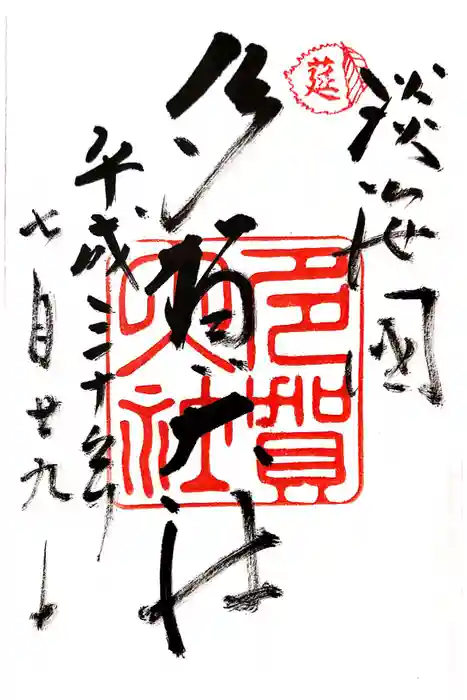 莚
淡海國
多賀大社
多賀大社
平成三十年
七月廿九日